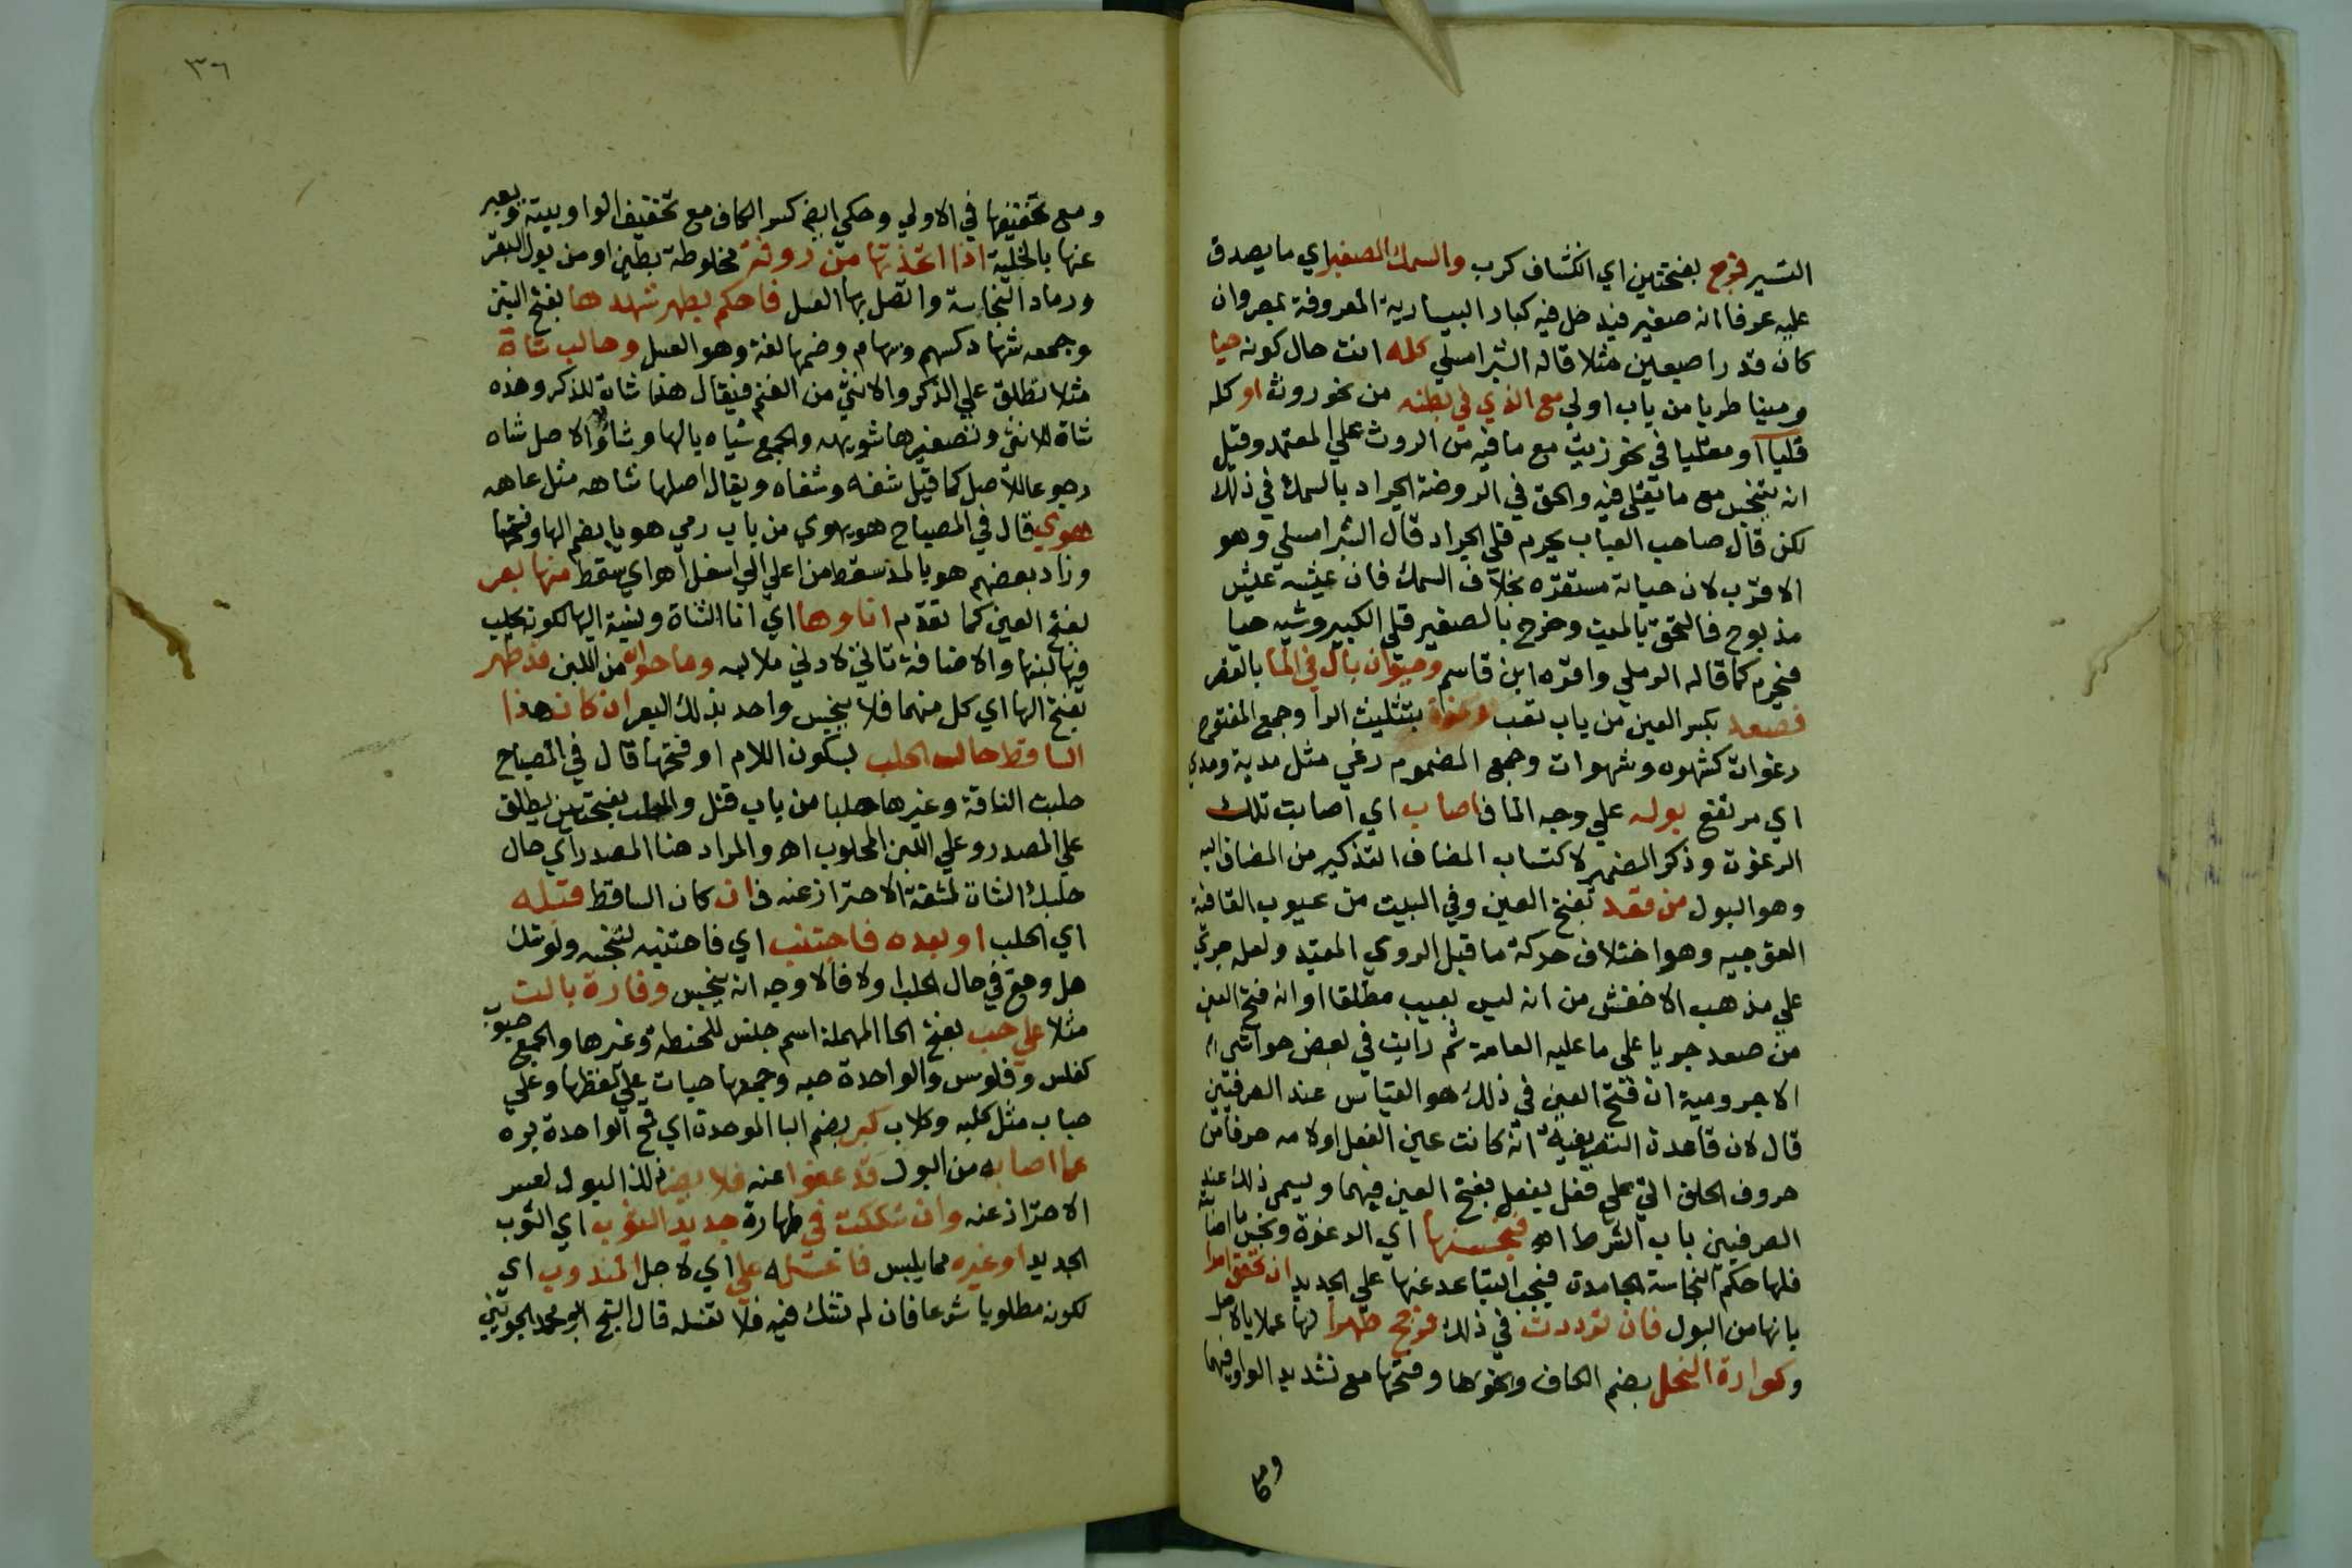 التسير فرج بفتحتين اي انكشاف كرب والسمك الصغير اي ما يصدق
عليه عرفا انه صغير فيدخل فيه كبار البيسارية المعروفة بمصر وان
كان قدر اصبعين مثلا قاله الشبراملسي كله انت حال كونه حيا
وميتا طريا من باب اولي مع الذي في بطنه من نحو روث او كله
قليا او مقليا في نحو زيت مع ما فيه من الروث علي المعتمد وقيل
انه يتنجس مع ما يقلي فيه والحق في الروضة الجراد بالسمك في ذلك
لكن قال صاحب العباب يحرم قلي الجراد قال الشبراملسي وهو
الاقرب لان حياته مستقره بخلاف السمك فان عيشه عيش
مذبوح فالتحق بالميت وخرج بالصغير قلي الكبير وشيه حيا
فيحرم كما قاله الرملي واقره ابن قاسم وحيوان بال في الما بالقصر
فصعد بكسر العين من باب تعب رغوة بتثليث الرا وجمع المفتوح
رغوات كشهوه وشهوات وجمع المضموم رغي مثل مدية ومدي
اي مرتفع بوله علي وجه الما فاصاب اي اصابت تلك
الرغوت وذكر الضمير لاكتساب المضاف التذكير من المضاف اليه
وهو البول من قعد بفتح العين وفي البيت من عيوب القافية
التوجيه وهو اختلاف حركة ما قبل الروي المقيد ولعله جري
علي مذهب الاخفش من انه ليس بعيب مطلقا او انه فتح العين
من صعد جريا علي ما عليه العامة ثم رايت في بعض حواشي
الاجرومية ان فتح العين في ذلك هو القياس عند الصرفيين
قال لان قاعدة التصريفية انه كانت عين الفعل او لامه حرفا من
حروف الحلق اتي علي فعل يفعل بفتح العين فيهما ويسمي ذلك عند
الصرفيين باب الشرط اه فنجسنها اي الرغوة ونجس ما اصابته
فلها حكم النجاسة الجامدة فيجب التباعد عنها علي الجديد ان تحقق امرا
بانها من البول فان ترددت في ذلك فرجح طهرا لها عملا بالاصل
وكوارة النحل بضم الكاف وكسرها وفتحها مع تشديد الواو فيهما
ومع
٣٦
ومع تخفيفها في الاولي وحكي ايضا كسر الكاف مع تخفيف الواو بيته ويعبر
عنها بالخلية اذا اتخذتها من روثه مخلوطة بطين او من بول البقر
ورماد النجاسة واتصل بها العسل فاحكم بطهر شهدها بفتح الشين
وجمعه شهاد كسهم وسهام وضمها لغة وهو العسل وحالب شاة
مثلا تطلق علي الذكر والانثي من الغنم فيقال هذا شاة للذكر وهذه
شاة للانثي وتصغيرها شويهه والجمع شياه بالها وشاؤ والاصل شاه
رجوعا للاصل كما قيل شفه وشفاه ويقال اصلها شاهه مثل عاهه
هوي قال في المصباح هوي يهوي من باب رمي هويا بضم الها وفتحها
وزاد بعضهم هويا لمد سقط من اعلي الي اسفل اه اي سقط منها بعر
بفتح العين كما تقدم اناوها اي انا الشاة ونسبة اليها لكونه يحلب
فيه لبنها والاضافة تاتي لادني ملابسه وما حواه من اللبن قد طهر
بفتح الها اي كل منهما فلا ينجس واحد بذلك البعر ان كان هذا
الساقط حالة الحلب بسكون اللام او فتحها قال في المصباح
حلبت الناقة وغيرها حلبا من باب قتل والحلب بفتحتين يطلق
علي المصدر وعلي اللبن المحلوب اه والمراد هنا المصدر اي حال
حلبك الشاة لمشقة الاحتراز عنه فان كان الساقط قبله
اي الحلب او بعده فاجتنب اي فاجتنبه لتنجسه ولو شك
هل وقع في حال الحلب اولا فالاوجه انه ينجس وفارة بالت
مثلا علي حب بفتح الحا المهملة اسم جنس للحنطة وغيرها والجمع حبوب
كفلس وفلوس والواحدة حبه وجمعها حبات علي لفظها وعلي
حباب مثل كلبه وكلاب كبر بضم البا الموحدة اي قمح الواحدة بره
عما اصابه من البول قد عفوا عنه فلا يضر لذا البول لعسر
الاحتراز عنه وان شككت في طهارة جديد الثوب اي الثوب
الجديد او غيره مما يلبس فاغسله علي اي لاجل المندوب اي
لكونه مطلوبا شرعا فان لم تشك فيه فلا تغسله قال الشيخ ابو محمد الجويني